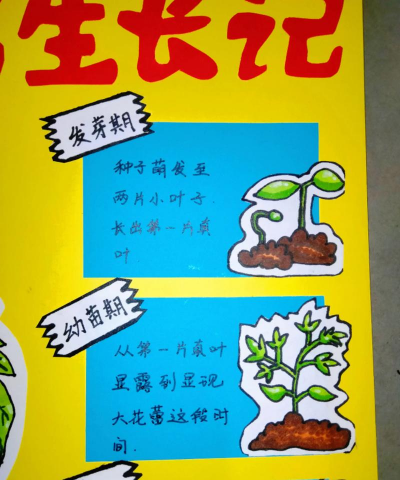 生长记
发芽期
种子萌发至
两片小叶子.
长出第一片真
叶
幼苗期
从第一片真叶
显露到显现
大花蕾这段时
间.